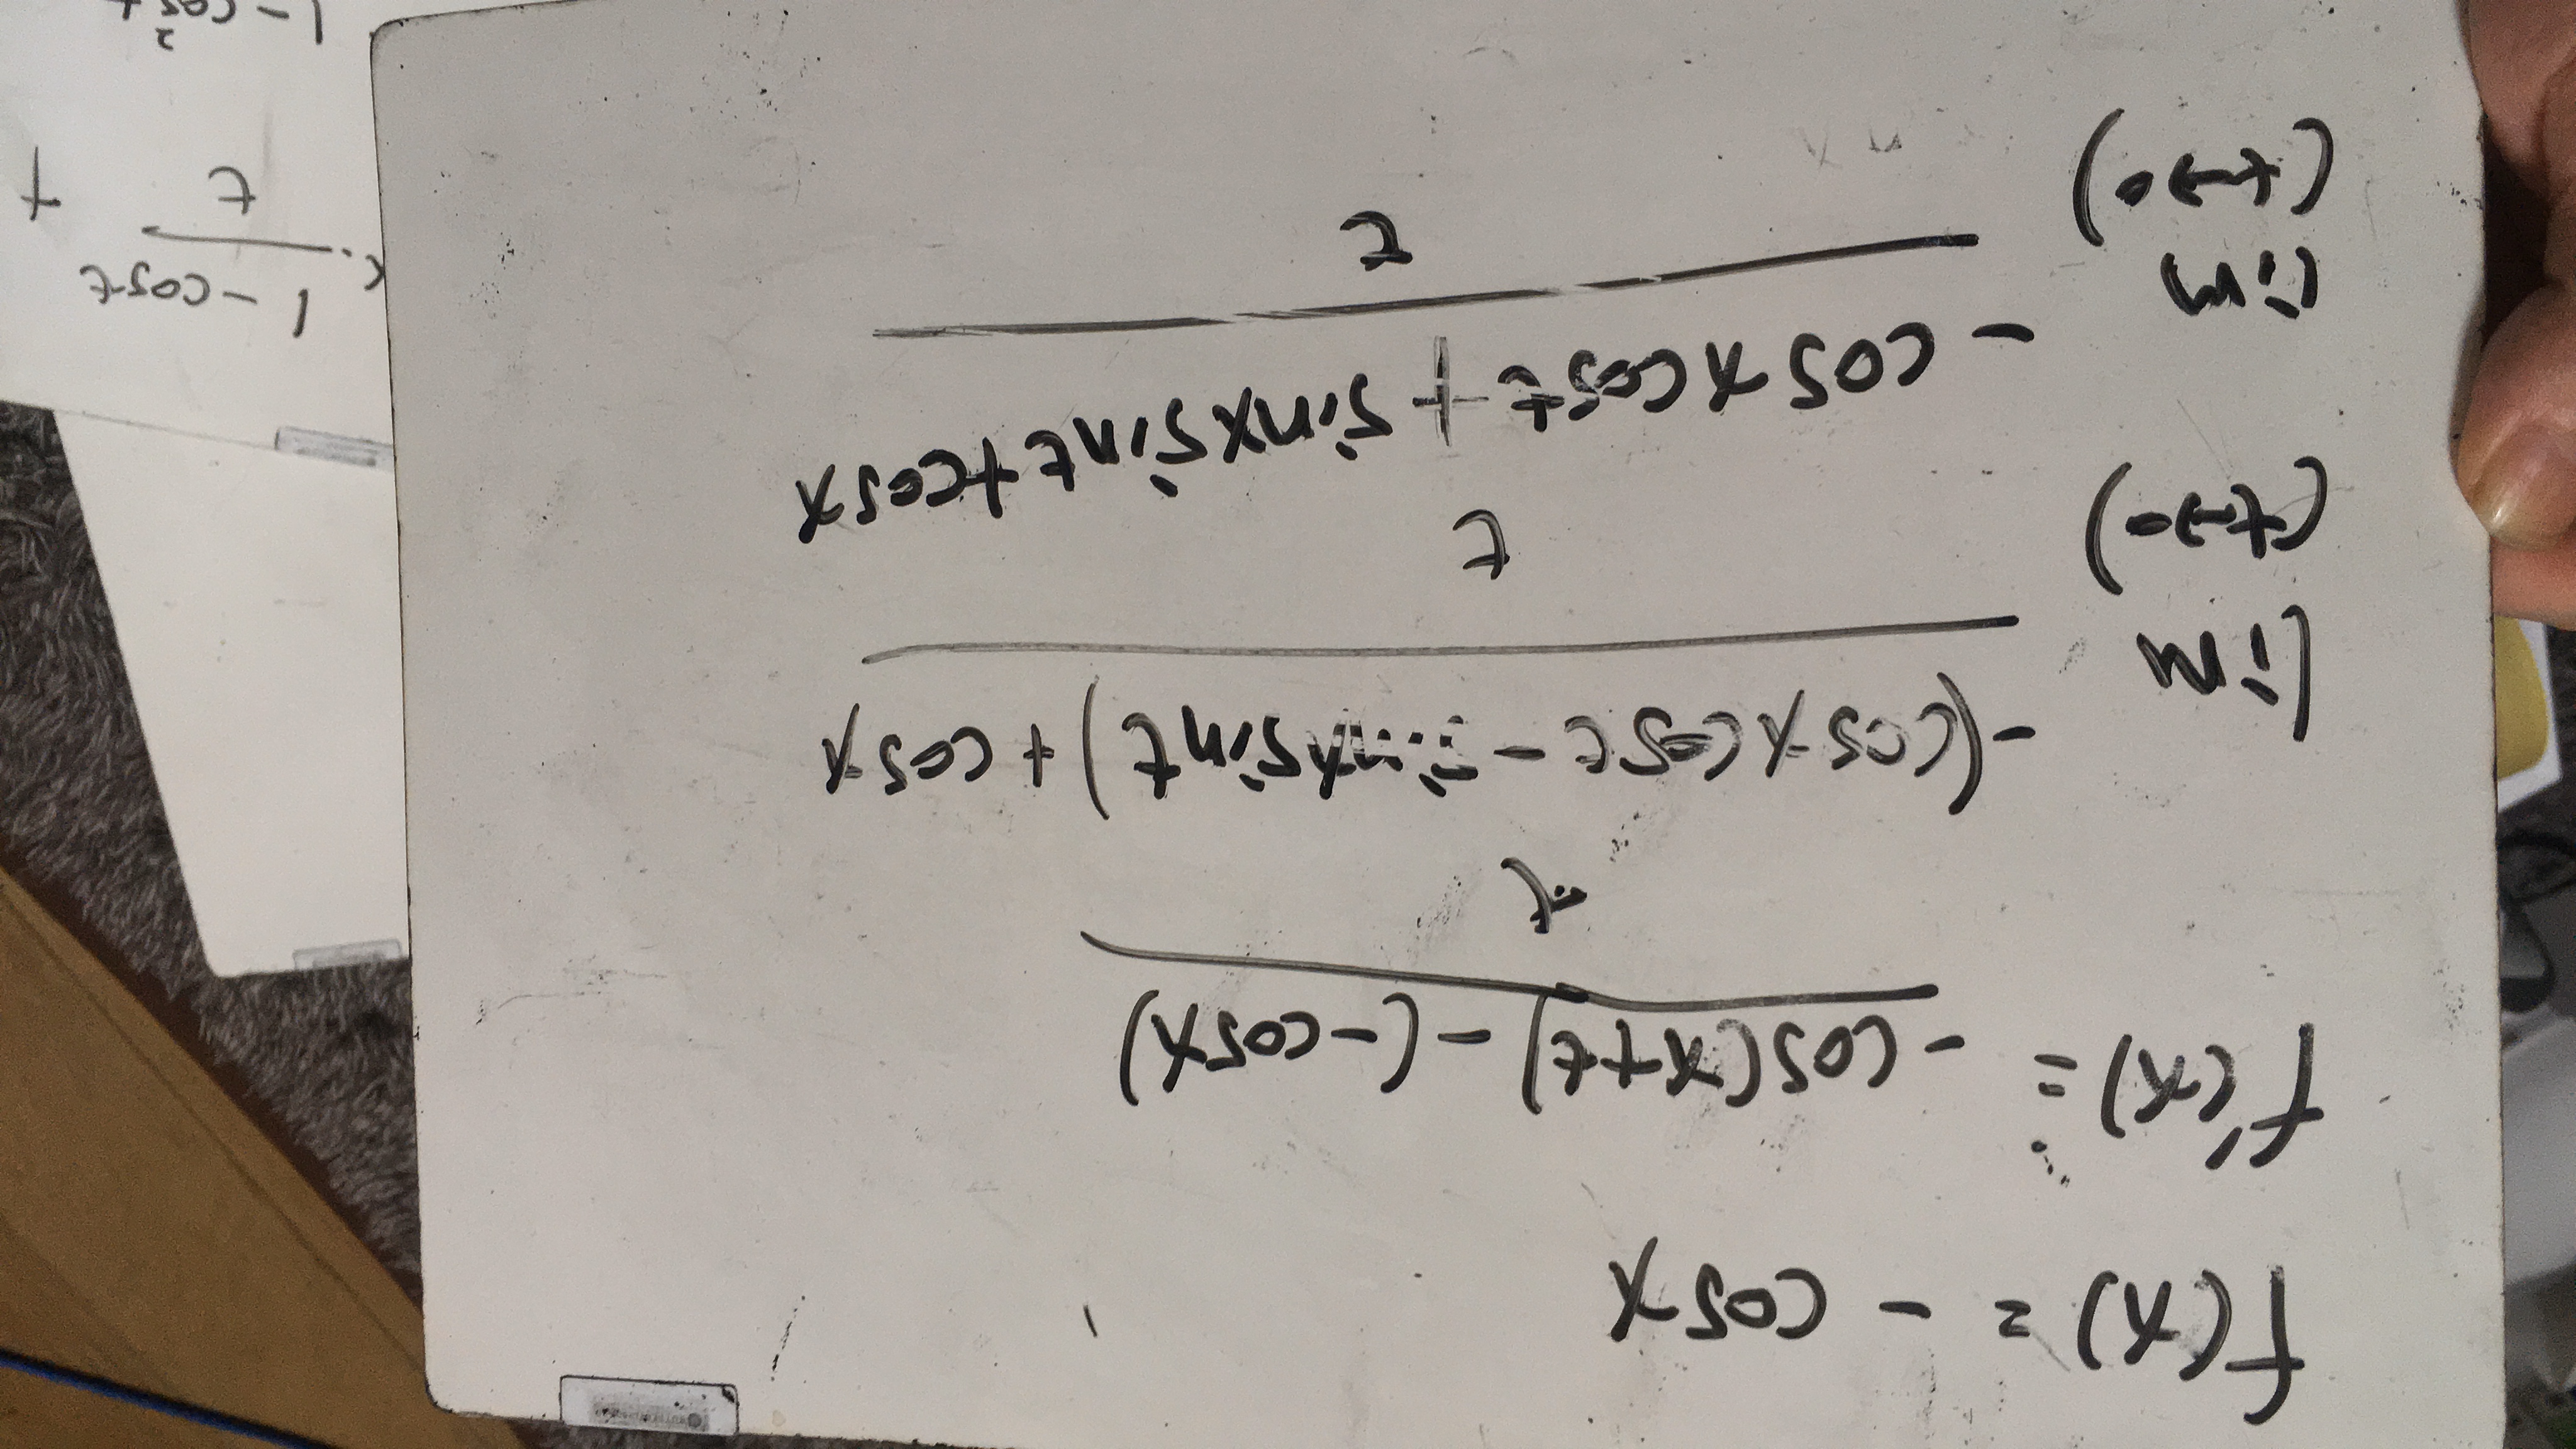 f(x) = - cosx
f'(x) = - cos(x+t) - (-cosx)
t
lim - (cosx cost - sinx sint) + cosx
(t→0) t
lim - cosx cost + sinx sint + cosx
(t→0) t
1 - cost
t
1 - cos²t